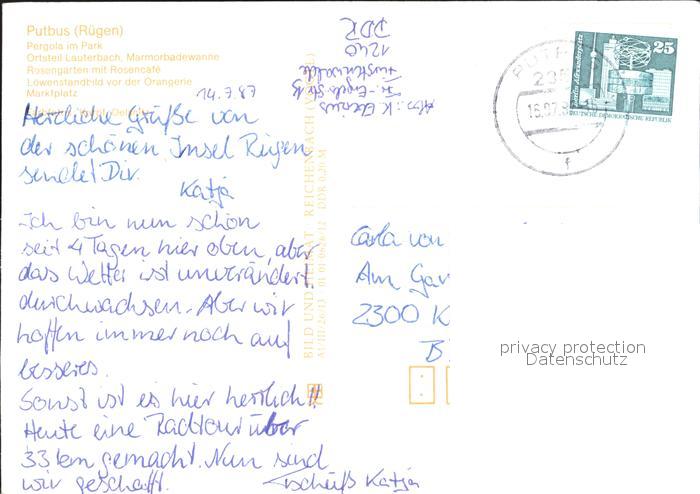 Putbus (Rügen)
Pergola im Park
Ortsteil Lauterbach, Marmorbadewanne
Rosengarten mit Rosencafé
Löwenstandbild vor der Orangerie
Marktplatz
14.7.87
Herzliche Grüße von
der schönen Insel Rügen
sendet Dir
Katja
Ich bin nun schon
seit 4 Tagen hier oben, aber
das Wetter ist unverändert.
durchwachsen. Aber wir
hoffen immer noch auf
besseres.
Sonst ist es hier herrlich!!
Heute eine Radtour über
33 km gemacht. Nun sind
wir geschafft. Tschüß Katja
Abs.: K.
Fr.-Engels-Str.
Fürstenwalde
1240
DDR
BILD UND HEIMAT REICHENBACH
DDR 0,20 M
25
DEUTSCHE DEMOKRATISCHE REPUBLIK
PUT
f
Carla von
Am Gar
2300 K
privacy protection
Datenschutz